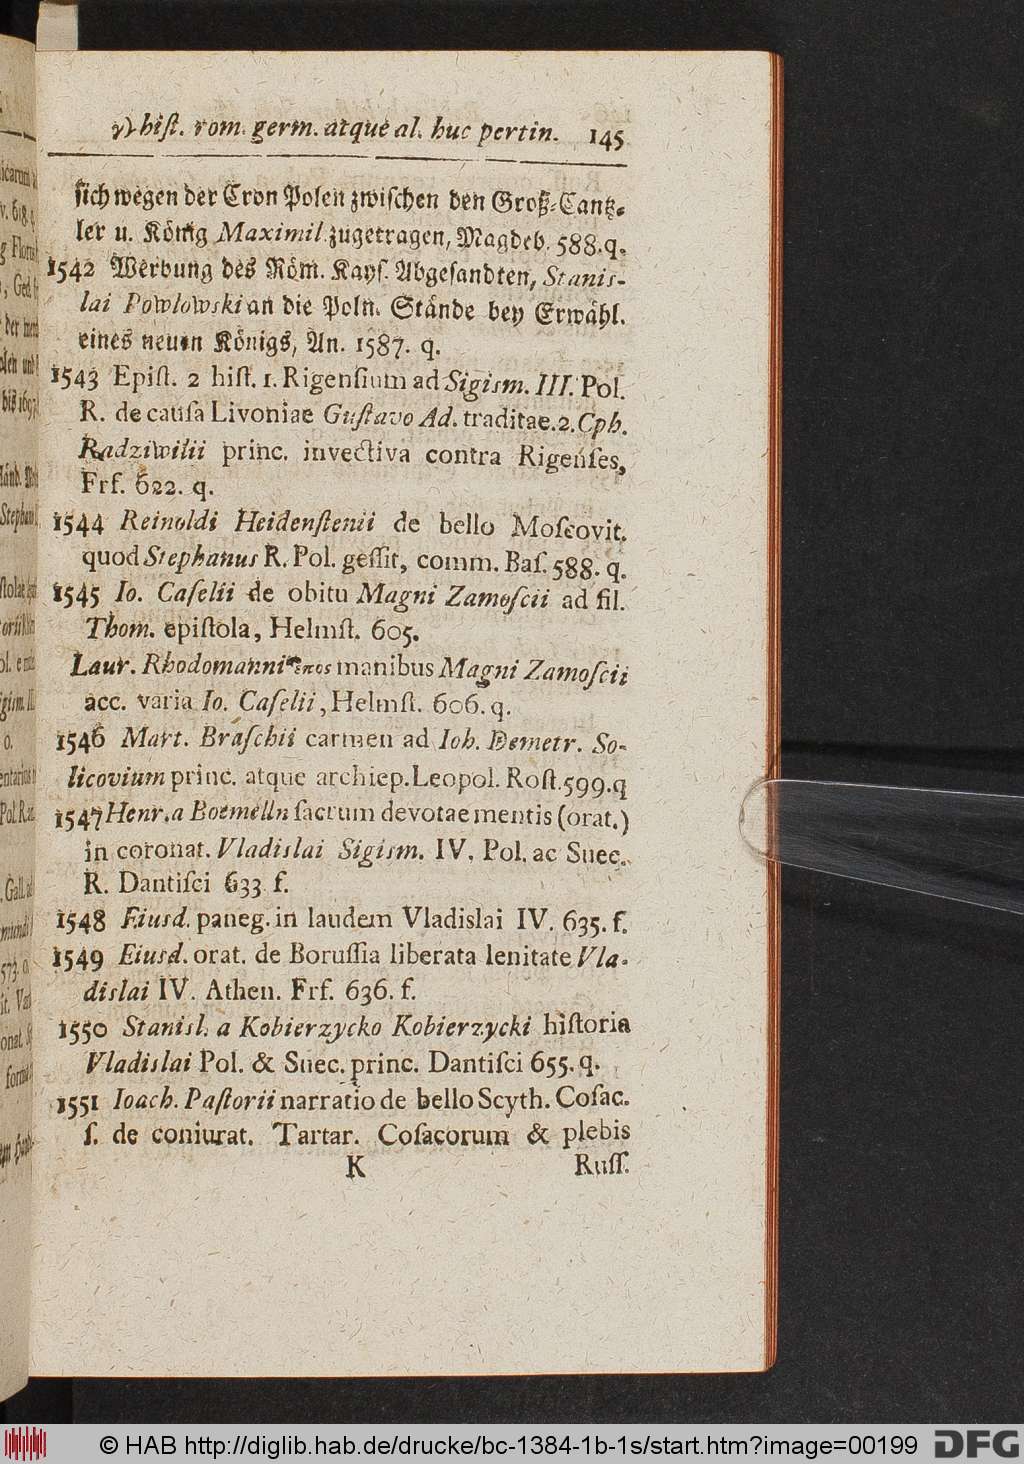 γ) hiſt. rom. germ. atque al. huc pertin. 145
ſich wegen der Cron Polen zwiſchen den Groß-Cantz-
ler u. König Maximil. zugetragen, Magdeb. 588. q.
1542 Werbung des Röm. Kayſ. Abgeſandten, Stanis-
lai Powlowski an die Poln. Stände bey Erwähl.
eines neuen Königs, An. 1587. q.
1543 Epiſt. 2 hiſt. 1. Rigenſium ad Sigism. III. Pol.
R. de cauſa Livoniae Guſtavo Ad. traditae. 2. Cph.
Radziwilii princ. invectiva contra Rigenſes,
Frf. 622. q.
1544 Reinoldi Heidenſtenii de bello Moſcovit.
quod Stephanus R. Pol. geſſit, comm. Baſ. 588. q.
1545 Io. Caſelii de obitu Magni Zamoſcii ad fil.
Thom. epiſtola, Helmſt. 605.
Laur. Rhodomanni ἔπος manibus Magni Zamoſcii
acc. varia Io. Caſelii, Helmſt. 606. q.
1546 Mart. Braſchii carmen ad Ioh. Demetr. So-
licovium princ. atque archiep. Leopol. Roſt. 599. q
1547 Henr. a Boemelln ſacrum devotae mentis (orat.)
in coronat. Vladislai Sigism. IV. Pol. ac Suec.
R. Dantiſci 633 f.
1548 Eiusd. paneg. in laudem Vladislai IV. 635. f.
1549 Eiusd. orat. de Boruſſia liberata lenitate Vla-
dislai IV. Athen. Frf. 636. f.
1550 Stanisl. a Kobierzycko Kobierzycki hiſtoria
Vladislai Pol. & Suec. princ. Dantiſci 655. q.
1551 Ioach. Paſtorii narratio de bello Scyth. Coſac.
ſ. de coniurat. Tartar. Coſacorum & plebis
K Ruſſ.
© HAB http://diglib.hab.de/drucke/bc-1384-1b-1s/start.htm?image=00199 DFG